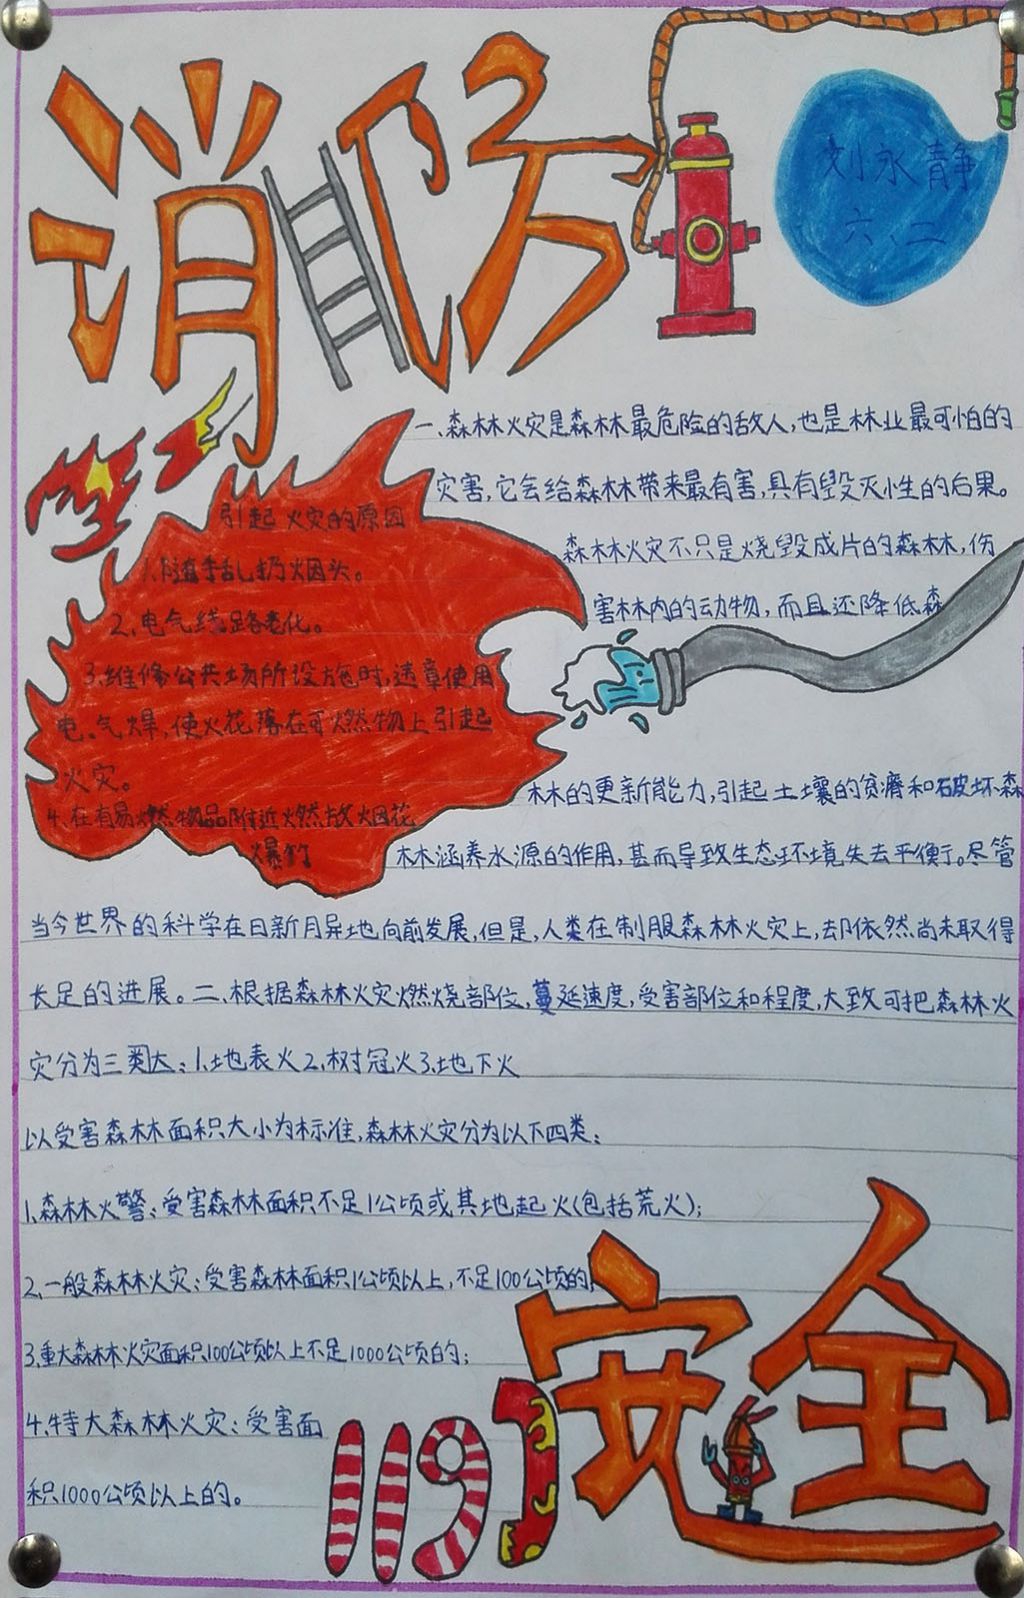 消防
刘永静
六、二
一、森林火灾是森林最危险的敌人,也是林业最可怕的
灾害,它会给森林带来最有害,具有毁灭性的后果。
森林火灾不只是烧毁成片的森林,伤
害林内的动物,而且还降低森
林的更新能力,引起土壤的贫瘠和破坏森
林涵养水源的作用,甚而导致生态环境失去平衡。尽管
当今世界的科学在日新月异地向前发展,但是,人类在制服森林火灾上,却依然尚未取得
长足的进展。二、根据森林火灾燃烧部位,蔓延速度,受害部位和程度,大致可把森林火
灾分为三类:1.地表火2.树冠火3.地下火
以受害森林面积大小为标准,森林火灾分为以下四类:
1.森林火警:受害森林面积不足1公顷或其地起火(包括荒火);
2.一般森林火灾:受害森林面积1公顷以上,不足100公顷的;
3.重大森林火灾面积100公顷以上不足1000公顷的;
4.特大森林火灾:受害面
积1000公顷以上的。
引起火灾的原因
1.随手乱扔烟头。
2.电气线路老化。
3.维修公共场所设施时,违章使用
电、气焊,使火花落在可燃物上引起
火灾。
4.在有易燃物品附近燃放烟花
爆竹
119
安全